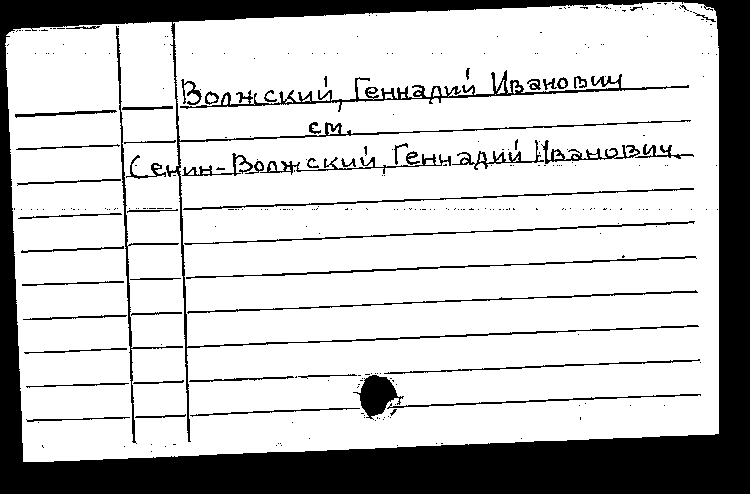 Волжский, Геннадий Иванович
см.
Сенин-Волжский, Геннадий Иванович.